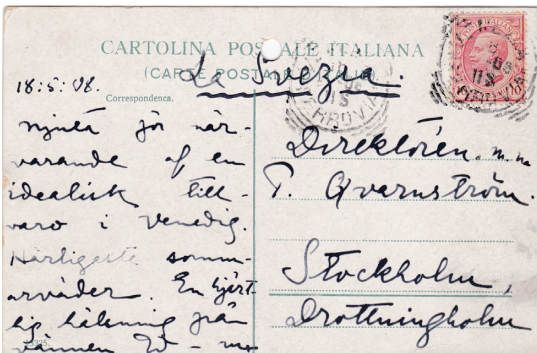 CARTOLINA POSTALE ITALIANA
(CARTE POSTALE D'ITALIE)
La Svezia.
18.5.08.
Corrispondenza.
njuta för när-
varande af en
idealisk till-
varo i Venedig.
Härligaste somm-
arväder. En hjärt-
lig hälsning från
vännen
Direktören m.m.
T. Qvarnström.
Stockholm,
Drottningholm
FERROVIA